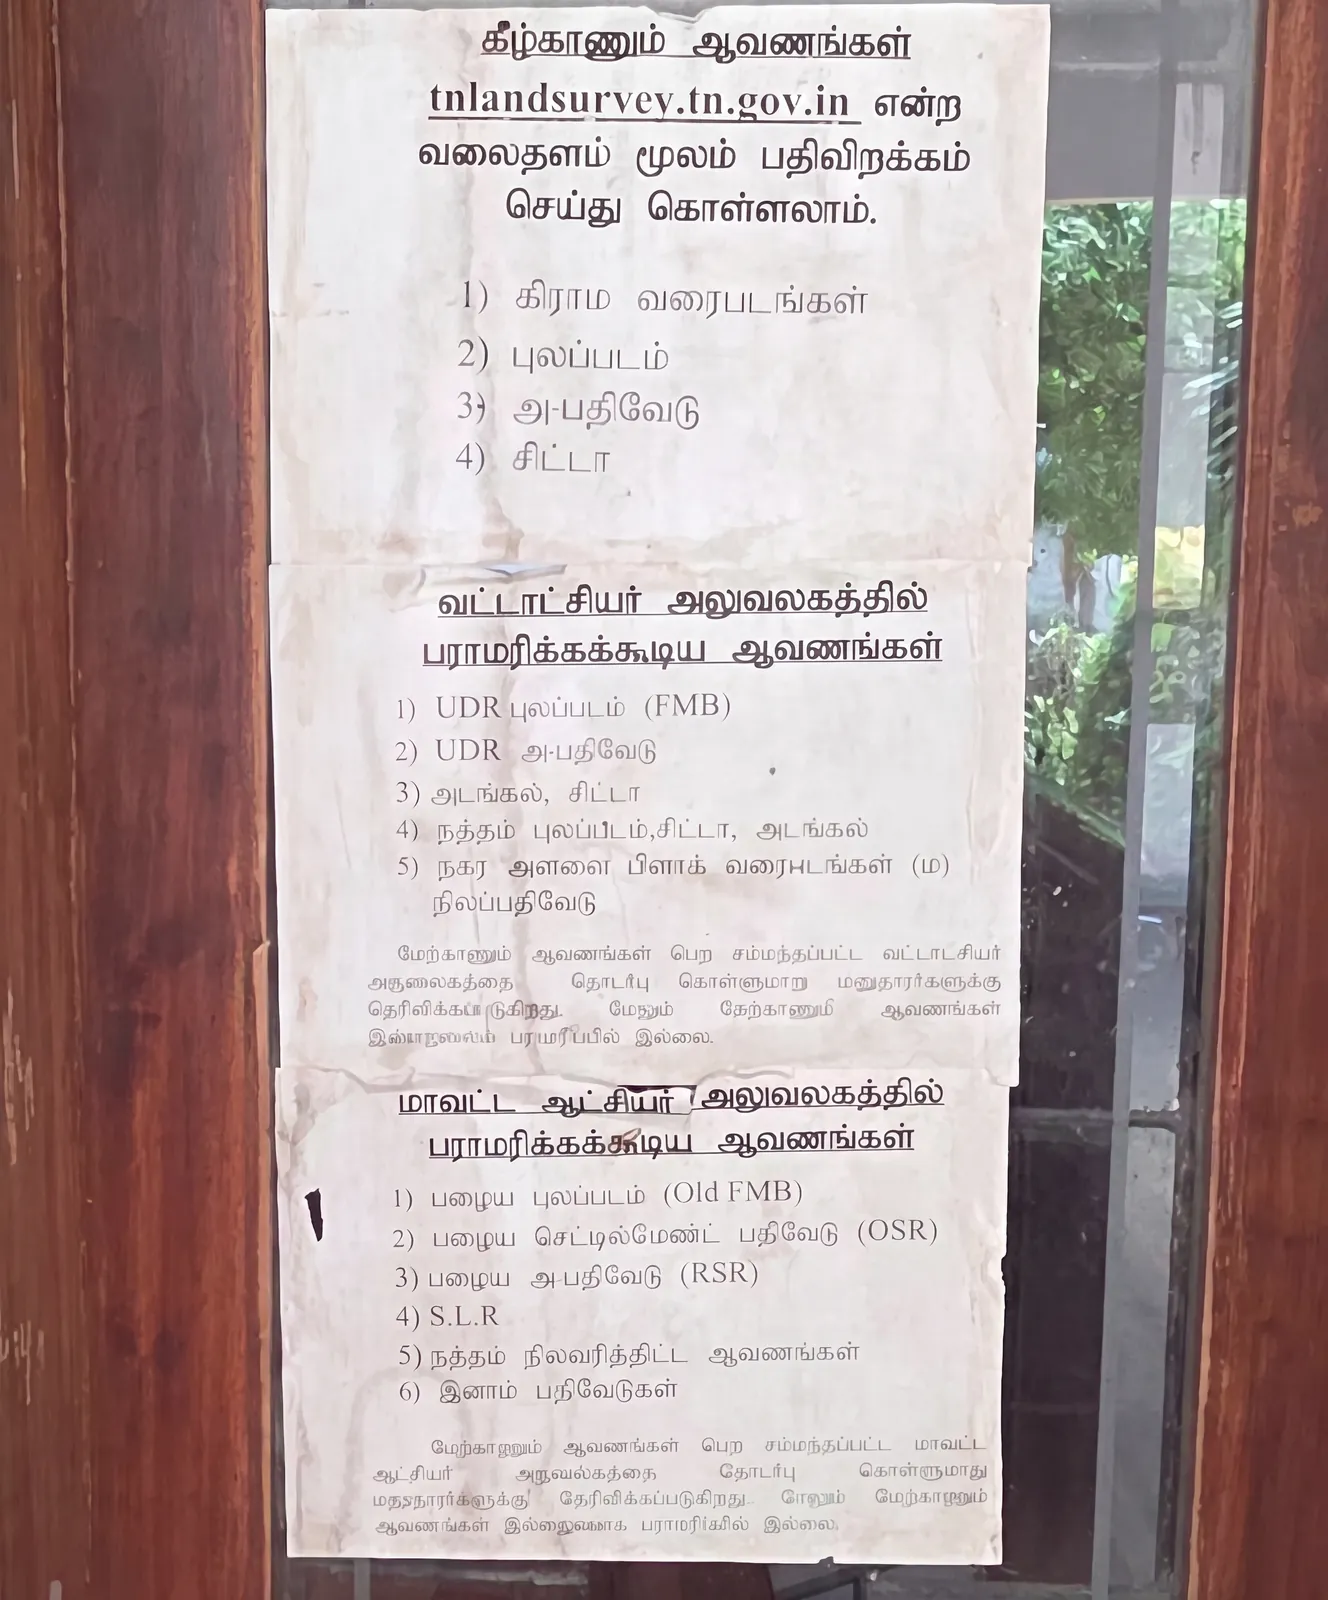 கீழ்காணும் ஆவணங்கள்
tnlandsurvey.tn.gov.in என்ற
வலைதளம் மூலம் பதிவிறக்கம்
செய்து கொள்ளலாம்.
1) கிராம வரைபடங்கள்
2) புலப்படம்
3) அ-பதிவேடு
4) சிட்டா
வட்டாட்சியர் அலுவலகத்தில்
பராமரிக்கக்கூடிய ஆவணங்கள்
1) UDR புலப்படம் (FMB)
2) UDR அ-பதிவேடு
3) அடங்கல், சிட்டா
4) நத்தம் புலப்படம்,சிட்டா, அடங்கல்
5) நகர அளளை பிளாக் வரைபடங்கள் (ம)
நிலப்பதிவேடு
மேற்காணும் ஆவணங்கள் பெற சம்மந்தப்பட்ட வட்டாடசியர்
தொடர்பு கொள்ளுமாறு மனுதாரர்களுக்கு
தெரிவிக்கப்படுகிறது. மேலும் ஆவணங்கள்
பராமரிப்பில் இல்லை.
மாவட்ட ஆட்சியர் அலுவலகத்தில்
பராமரிக்கக்கூடிய ஆவணங்கள்
1) பழைய புலப்படம் (Old FMB)
2) பழைய செட்டில்மேண்ட் பதிவேடு (OSR)
3) பழைய அ-பதிவேடு (RSR)
4) S.L.R
5) நத்தம் நிலவரித்திட்ட ஆவணங்கள்
6) இனாம் பதிவேடுகள்
மேற்காணும் ஆவணங்கள் பெற சம்மந்தப்பட்ட மாவட்ட
ஆட்சியர் தோடர்பு கொள்ளுமாது
தேரிவிக்கப்படுகிறது. மேற்காணும்
ஆவணங்கள் இல்லை.